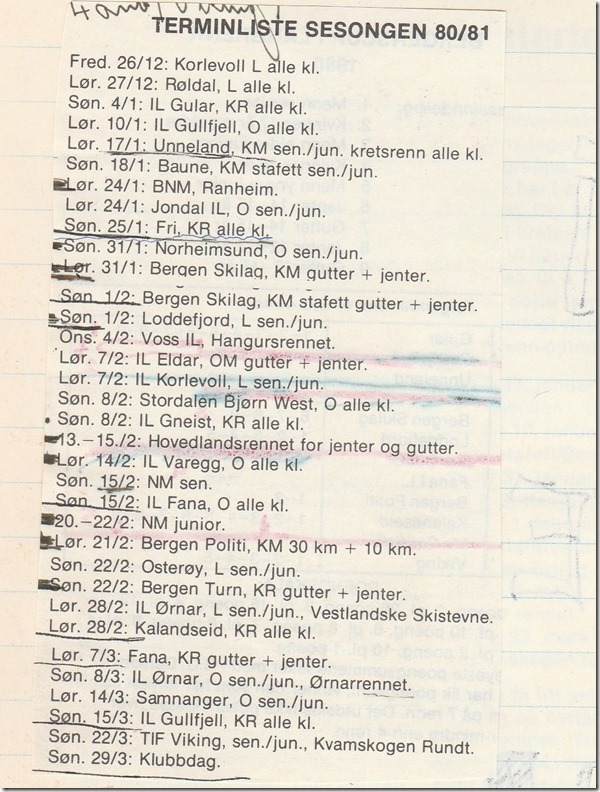 TERMINLISTE SESONGEN 80/81
Fred. 26/12: Korlevoll L alle kl.
Lør. 27/12: Røldal, L alle kl.
Søn. 4/1: IL Gular, KR alle kl.
Lør. 10/1: IL Gullfjell, O alle kl.
Lør. 17/1: Unneland, KM sen./jun. kretsrenn alle kl.
Søn. 18/1: Baune, KM stafett sen./jun.
Lør. 24/1: BNM, Ranheim.
Lør. 24/1: Jondal IL, O sen./jun.
Søn. 25/1: Fri, KR alle kl.
Søn. 31/1: Norheimsund, O sen./jun.
Lør. 31/1: Bergen Skilag, KM gutter + jenter.
Søn. 1/2: Bergen Skilag, KM stafett gutter + jenter.
Søn. 1/2: Loddefjord, L sen./jun.
Ons. 4/2: Voss IL, Hangursrennet.
Lør. 7/2: IL Eldar, OM gutter + jenter.
Lør. 7/2: IL Korlevoll, L sen./jun.
Søn. 8/2: Stordalen Bjørn West, O alle kl.
Søn. 8/2: IL Gneist, KR alle kl.
13.–15./2: Hovedlandsrennet for jenter og gutter.
Lør. 14/2: IL Varegg, O alle kl.
Søn. 15/2: NM sen.
Søn. 15/2: IL Fana, O alle kl.
20.–22/2: NM junior.
Lør. 21/2: Bergen Politi, KM 30 km + 10 km.
Søn. 22/2: Osterøy, L sen./jun.
Søn. 22/2: Bergen Turn, KR gutter + jenter.
Lør. 28/2: IL Ørnar, L sen./jun., Vestlandske Skistevne.
Lør. 28/2: Kalandseid, KR alle kl.
Lør. 7/3: Fana, KR gutter + jenter.
Søn. 8/3: IL Ørnar, O sen./jun., Ørnarrennet.
Lør. 14/3: Samnanger, O sen./jun.
Søn. 15/3: IL Gullfjell, KR alle kl.
Søn. 22/3: TIF Viking, sen./jun., Kvamskogen Rundt.
Søn. 29/3: Klubbdag.